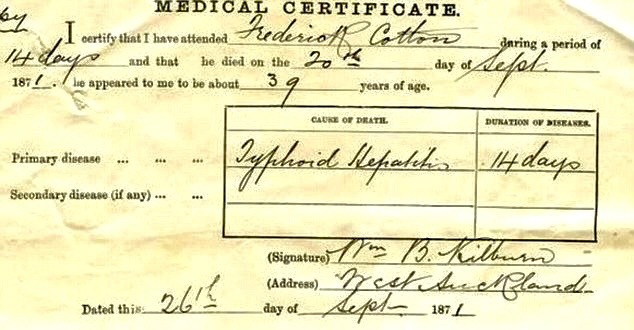 by
MEDICAL CERTIFICATE.
I certify that I have attended Frederick Cotton during a period of
14 days and that he died on the 20th day of Sept.
1871. he appeared to me to be about 39 years of age.
CAUSE OF DEATH. DURATION OF DISEASES.
Primary disease ... ... ... Typhoid Hepatitis 14 days
Secondary disease (if any) ... ...
(Signature) Wm B. Kilburn
(Address) West Auckland
Dated this 26th day of Sept 1871